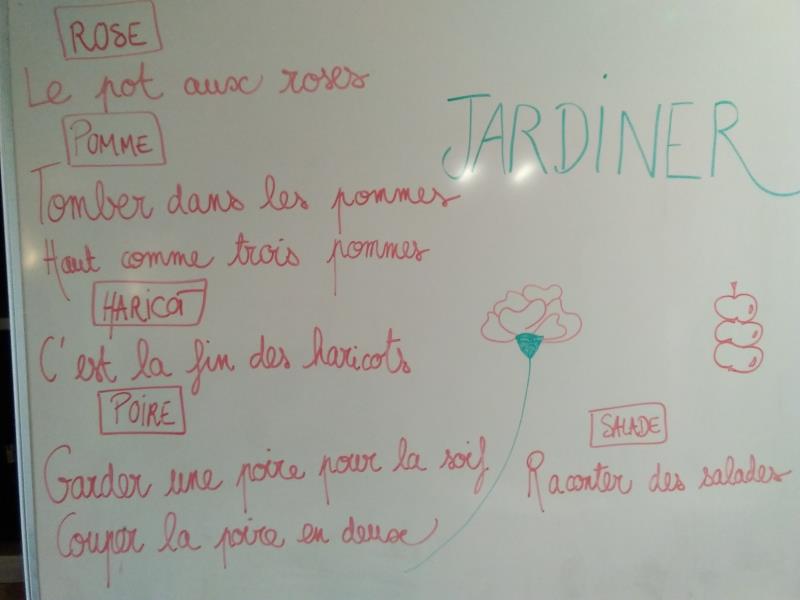 ROSE
Le pot aux roses
POMME
Tomber dans les pommes
Haut comme trois pommes
HARICOT
C'est la fin des haricots
POIRE
Garder une poire pour la soif
Couper la poire en deux
JARDINER
SALADE
Raconter des salades